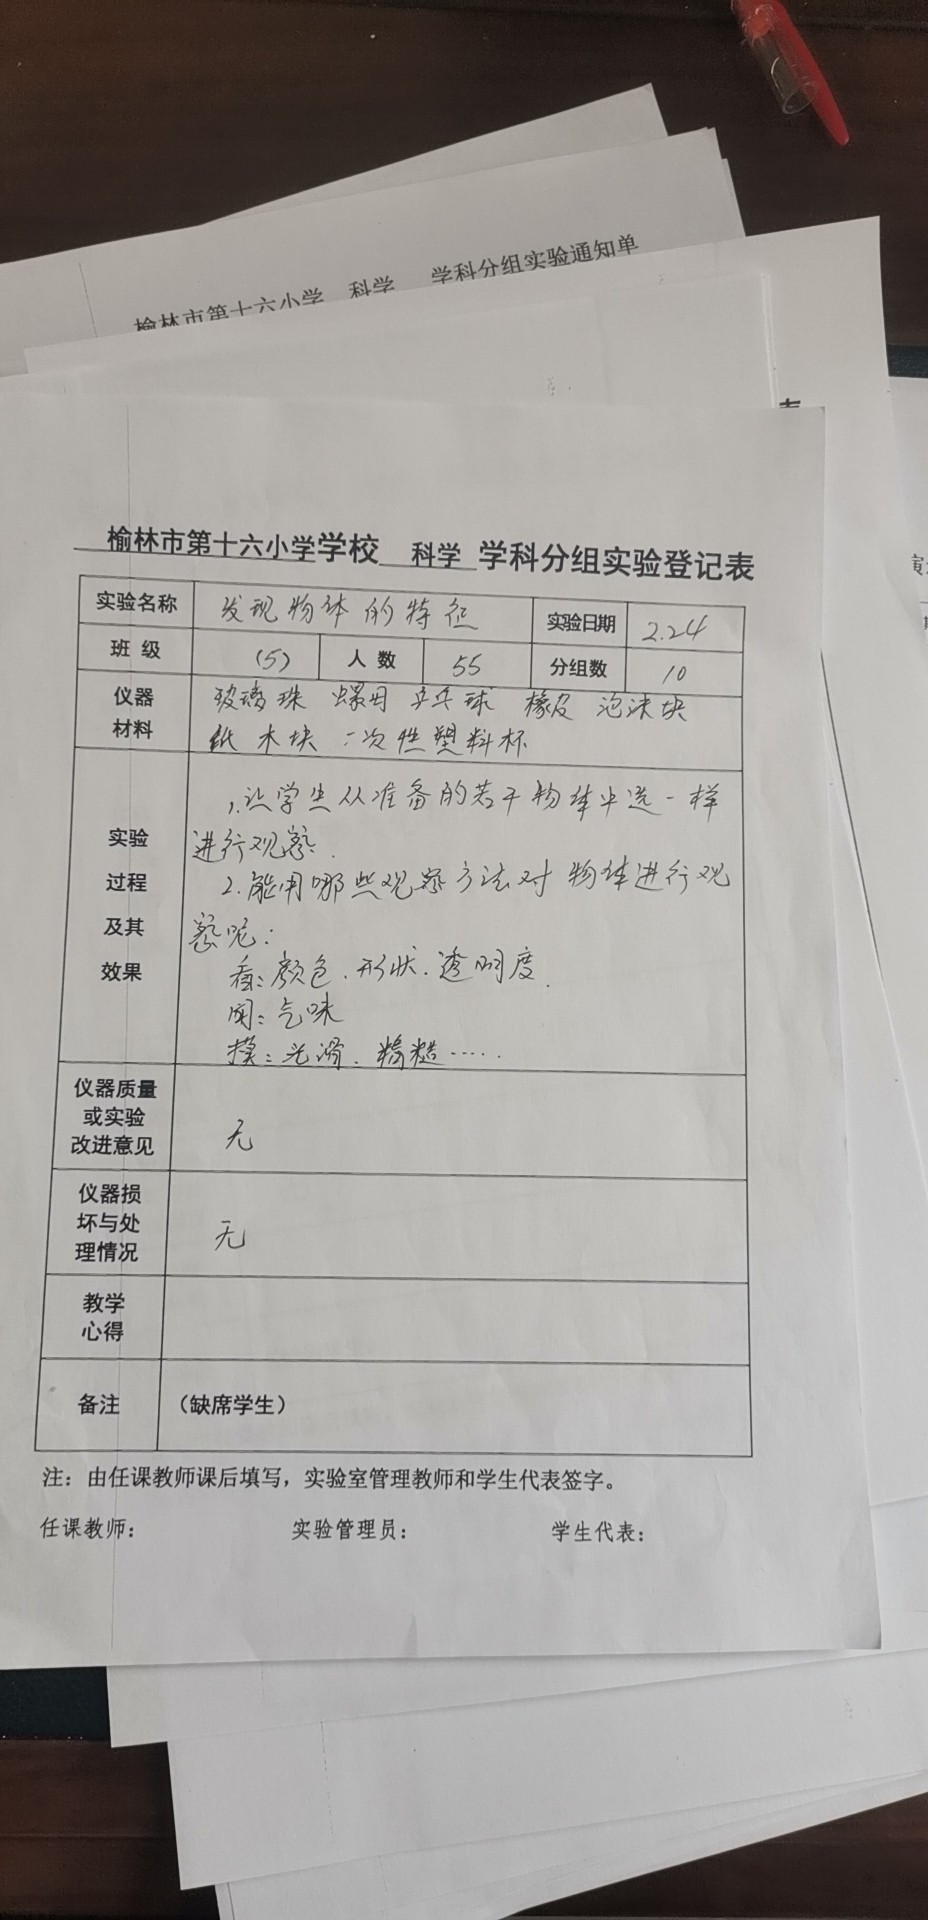 榆林市第十六小学 科学 学科分组实验通知单
表
榆林市第十六小学学校 科学 学科分组实验登记表
实验名称 发现物体的特征 实验日期 2.24
班级 (5) 人数 55 分组数 10
仪器材料 玻璃珠 螺母 乒乓球 橡皮 泡沫块
纸 木块 二次性塑料杯
实验过程及其效果
1.让学生从准备的若干物体中选一样
进行观察.
2.能用哪些观察方法对物体进行观
察呢:
看:颜色.形状.透明度.
闻:气味
摸:光滑.粗糙……
仪器质量或实验改进意见 无
仪器损坏与处理情况 无
教学心得
备注 (缺席学生)
注:由任课教师课后填写,实验室管理教师和学生代表签字。
任课教师: 实验管理员: 学生代表: